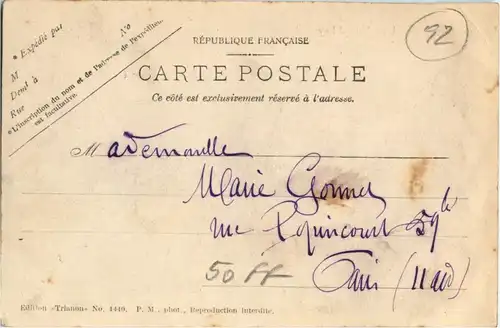 RÉPUBLIQUE FRANÇAISE
92
CARTE POSTALE
Ce côté est exclusivement réservé à l'adresse.
* Expédié par
M
No
Demt à
Rue
*L'inscription du nom et de l'adresse de l'expéditeur
est facultative.
Mademoiselle
Marie
rue Popincourt 59
Paris (11
50 FF
Edition «Trianon» No. 4449. P. M. phot., Reproduction interdite.